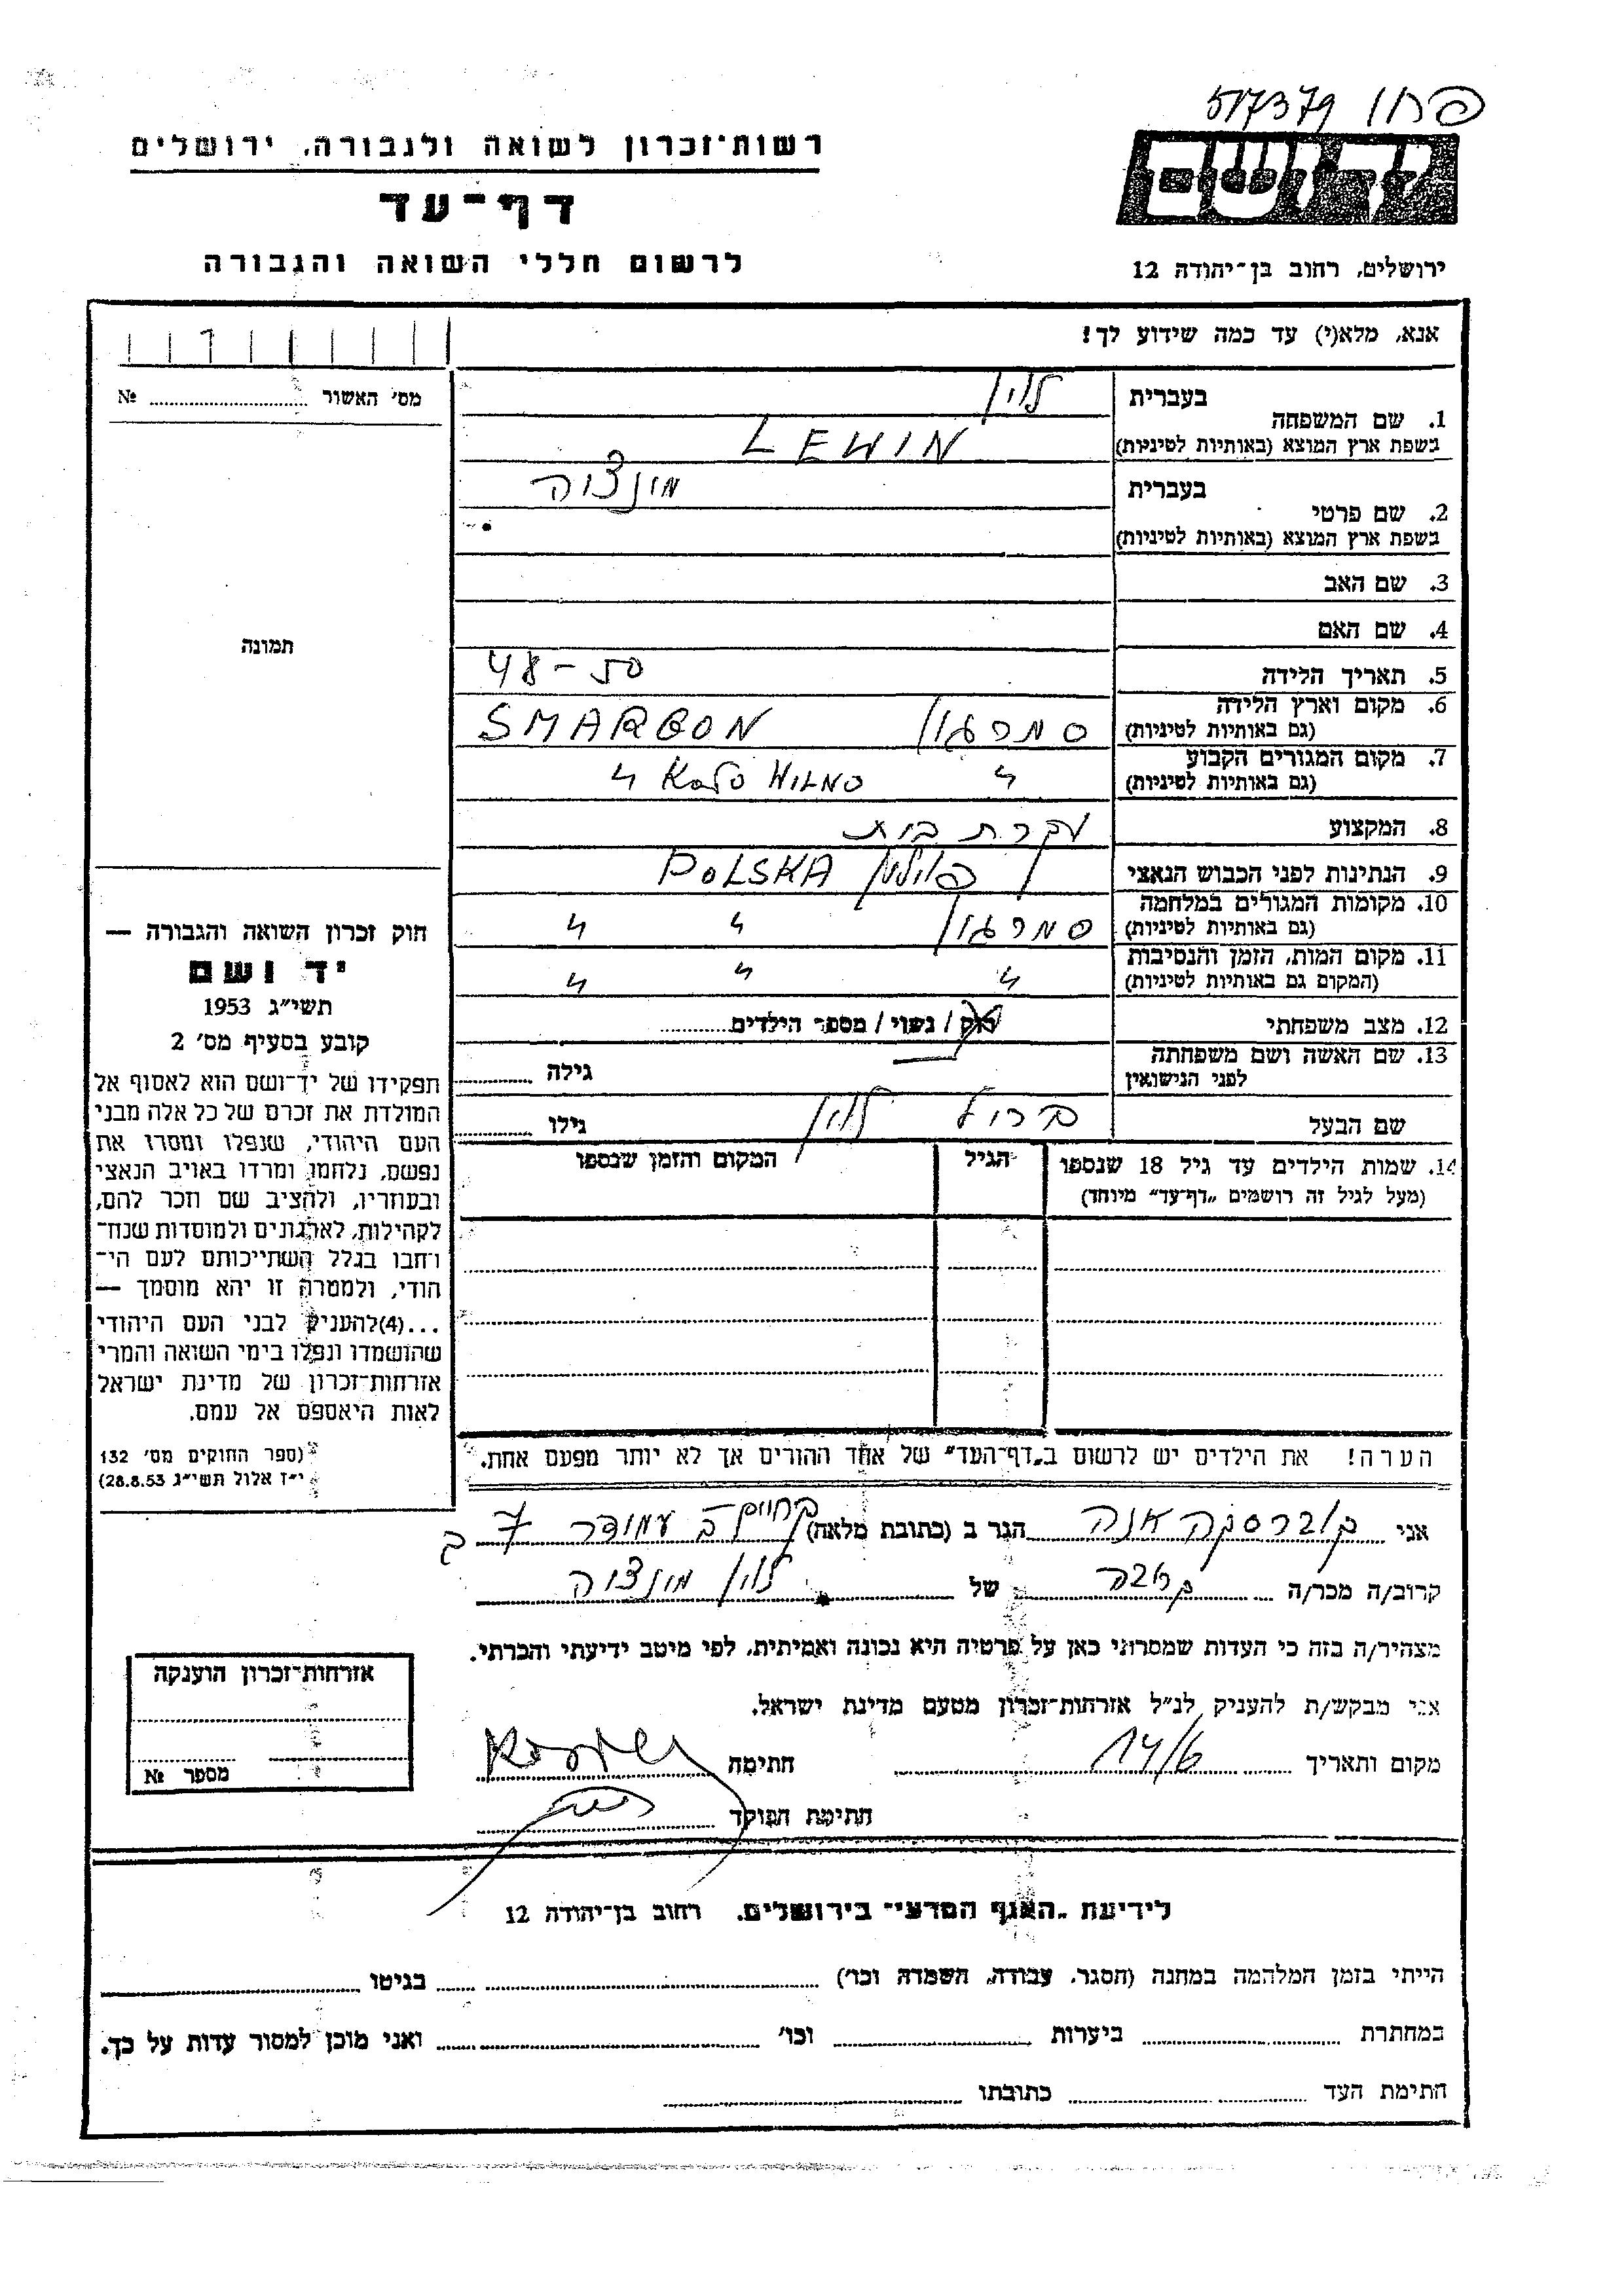 פרח 517379
יד ושם
רשות־זכרון לשואה ולגבורה, ירושלים
דף־עד
לרשום חללי השואה והגבורה
ירושלים, רחוב בן־יהודה 12
אנא, מלא(י) עד כמה שידוע לך!
מס׳ האשור № 
1. שם המשפחה
בעברית לוין
בשפת ארץ המוצא (באותיות לטיניות) LEWIN
2. שם פרטי
בעברית
בשפת ארץ המוצא (באותיות לטיניות)
3. שם האב
4. שם האם
תמונה
5. תאריך הלידה 48-50
6. מקום וארץ הלידה
(גם באותיות לטיניות) סמרגון SMARGON
7. מקום המגורים הקבוע
(גם באותיות לטיניות) " KOŁO WILNO "
8. המקצוע עקרת בית
9. הנתינות לפני הכבוש הנאצי פולין POLSKA
10. מקומות המגורים במלחמה
(גם באותיות לטיניות) סמרגון " "
11. מקום המות, הזמן והנסיבות
(המקום גם באותיות לטיניות) " " "
12. מצב משפחתי רוק / נשוי / מספר הילדים
13. שם האשה ושם משפחתה
לפני הנישואין גילה
שם הבעל לוין גילו
14. שמות הילדים עד גיל 18 שנספו
(מעל לגיל זה רושמים „דף־עד״ מיוחד)
הגיל
המקום והזמן שנספו
חוק זכרון השואה והגבורה —
יד ושם
תשי״ג 1953
קובע בסעיף מס׳ 2
תפקידו של יד־ושם הוא לאסוף אל
המולדת את זכרם של כל אלה מבני
העם היהודי, שנפלו ומסרו את
נפשם, נלחמו ומרדו באויב הנאצי
ובעוזריו, ולהציב שם וזכר להם,
לקהילות, לארגונים ולמוסדות שנח־
רבו בגלל השתייכותם לעם הי־
הודי, ולמטרה זו יהא מוסמך —
...(4)להעניק לבני העם היהודי
שהושמדו ונפלו בימי השואה והמרי
אזרחות־זכרון של מדינת ישראל
לאות היאספם אל עמם.
(ספר החוקים מס׳ 132
י״ז אלול תשי״ג 28.8.53)
הערה! את הילדים יש לרשום ב„דף־העד״ של אחד ההורים אך לא יותר מפעם אחת.
אני אנה הגר ב (כתובת מלאה) 7 ב
קרוב/ה מכר/ה של לוין
מצהיר/ה בזה כי העדות שמסרתי כאן על פרטיה היא נכונה ואמיתית, לפי מיטב ידיעתי והכרתי.
אני מבקש/ת להעניק לנ״ל אזרחות־זכרון מטעם מדינת ישראל.
מקום ותאריך 14/6 חתימה
חתימת הפוקד
אזרחות־זכרון הוענקה
מספר №
לידיעת „האגף המדעי״ בירושלים, רחוב בן־יהודה 12
הייתי בזמן המלחמה במחנה (הסגר, עבודה, השמדה וכו׳) בגיטו
במחתרת ביערות וכו׳ ואני מוכן למסור עדות על כך.
חתימת העד כתובתו